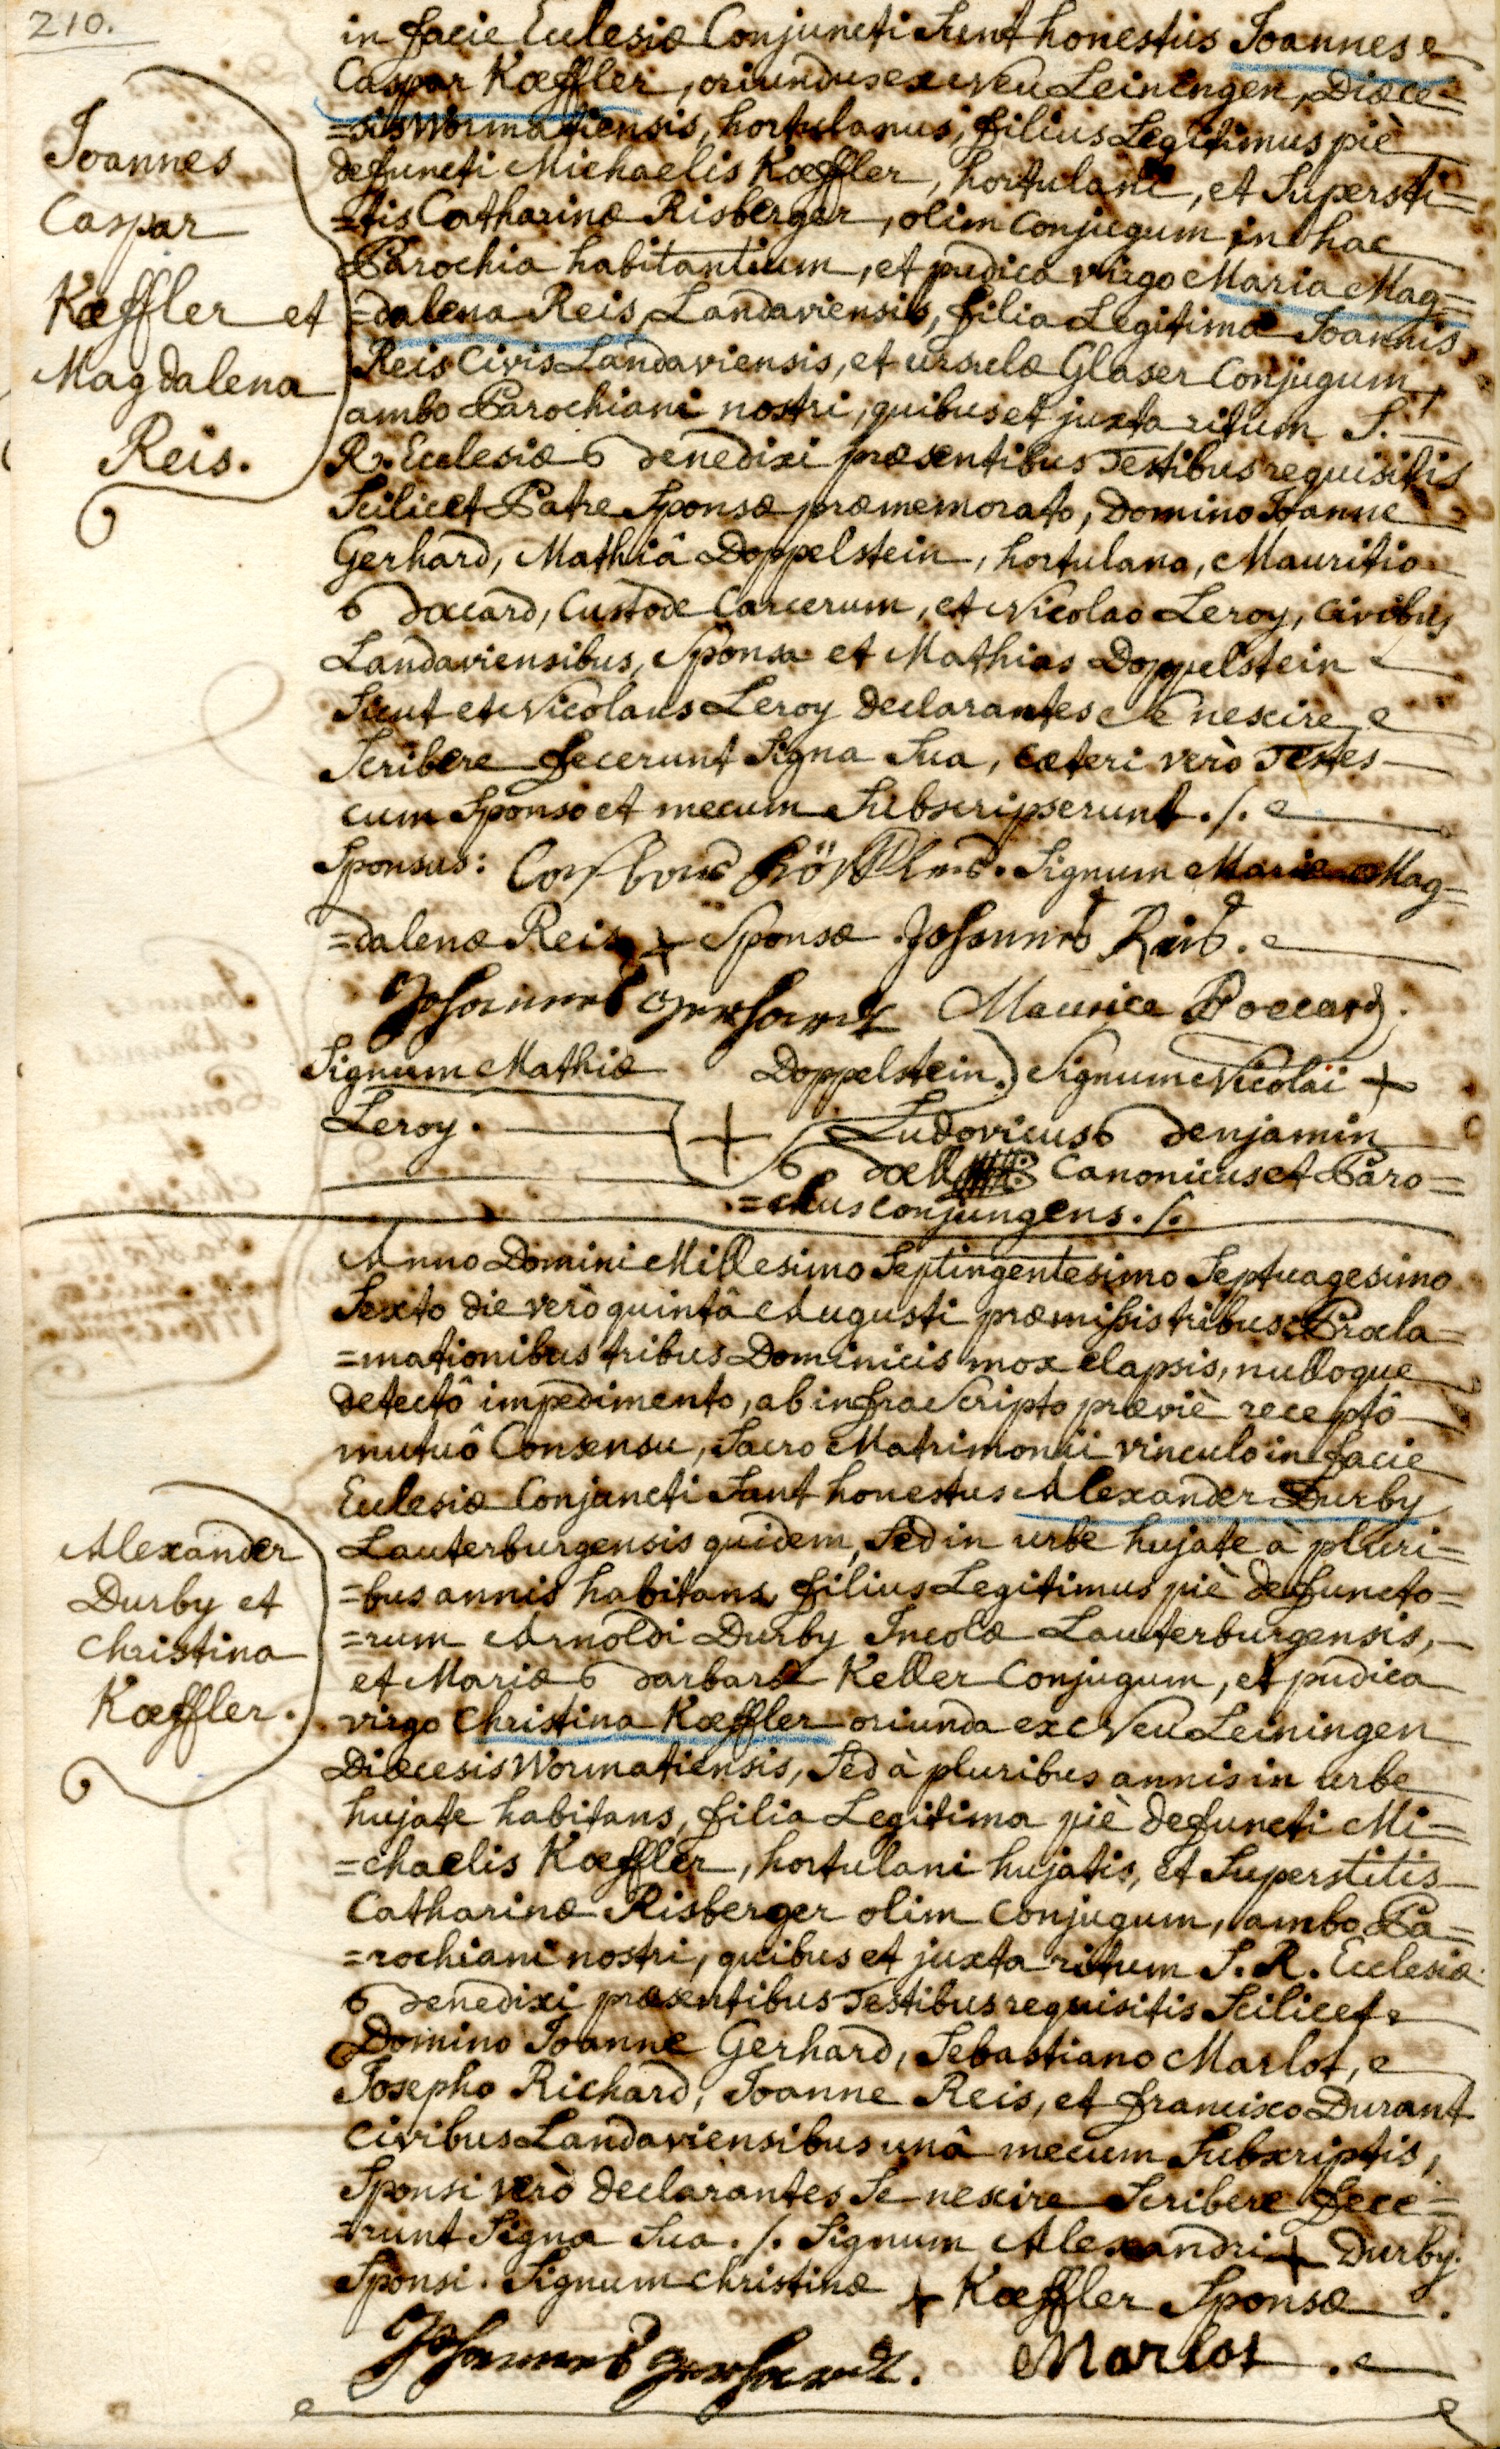 210.
in facie Ecclesiæ Conjuncti Sunt honestus Joannes
Caspar Kœffler, oriundus ex Neu Leiningen, Diœce=
=sis Wormatiensis, hortulanus, filius Legitimus piè
defuncti Michaelis Kœffler, hortulani, et Supersti=
=tis Catharinæ Risberger, olim conjugum in hac
Parochia habitantium, et pudica virgo Maria Mag=
=dalena Reis, Landaviensis, filia Legitima Joannis
Reis Civis Landaviensis, et ursulæ Glaser Conjugum,
ambo Parochiani nostri, quibus et juxta ritum S.
R. Ecclesiæ Benedixi præsentibus Testibus requisitis
Scilicet Patre Sponsæ præmemorato, Domino Joanne
Gerhard, Mathiâ Doppelstein, hortulano, Mauritio
Boccard, Custode Carcerum, et Nicolao Leroy, civibus
Landaviensibus, Sponsa et Mathias Doppelstein
Sicut et Nicolaus Leroy declarantes Se nescire
Scribere fecerunt Signa Sua, cæteri verò Testes
cum Sponso et mecum Subscripserunt ./.
Sponsus: Signum Mariæ Mag=
=dalenæ Reis + Sponsæ. Johannes Reis.
Johannes Gerhardt Maurice Boccard.
Signum Mathiæ Doppelstein.) Signum Nicolai +
Leroy. + Ludovicus Benjamin
Canonicus et Paro=
=chus conjungens ./.
Joannes
Caspar
Kœffler et
Magdalena
Reis.
Anno Domini Millesimo Septingentesimo Septuagesimo
Sexto die verò quintâ Augusti præmissis tribus Procla=
=mationibus tribus Dominicis mox elapsis, nulloque
detectô impedimento, ab infra Scripto præviè receptô
mutuô Consensu, Sacro Matrimonii vinculo in facie
Ecclesiæ Conjuncti Sunt honestus Alexander Durby
Lauterburgensis quidem, Sed in urbe hujate à pluri=
=bus annis habitans, filius Legitimus piè defuncto=
=rum Arnoldi Durby Incolæ Lauterburgensis,
et Mariæ Barbaræ Keller Conjugum, et pudica
virgo Christina Kœffler oriunda ex Neu Leiningen
Diœcesis Wormatiensis, Sed à pluribus annis in urbe
hujate habitans, filia Legitima piè defuncti Mi=
=chaelis Kœffler, hortulani hujatis, et Superstitis
Catharinæ Risberger olim conjugum, ambo Pa=
=rochiani nostri, quibus et juxta ritum S. R. Ecclesiæ
Benedixi præsentibus Testibus requisitis Scilicet
Domino Joanne Gerhard, Sebastiano Marlot,
Josepho Richard, Joanne Reis, et francisco Durant
Civibus Landaviensibus unâ mecum Subscriptis,
Sponsi verò declarantes Se nescire Scribere fece=
=runt Signa Sua ./. Signum Alexandri + Durby
Sponsi. Signum Christinæ + Kœffler Sponsæ.
Johannes Gerhardt. Marlot.
Alexander
Durby et
Christina
Kœffler.